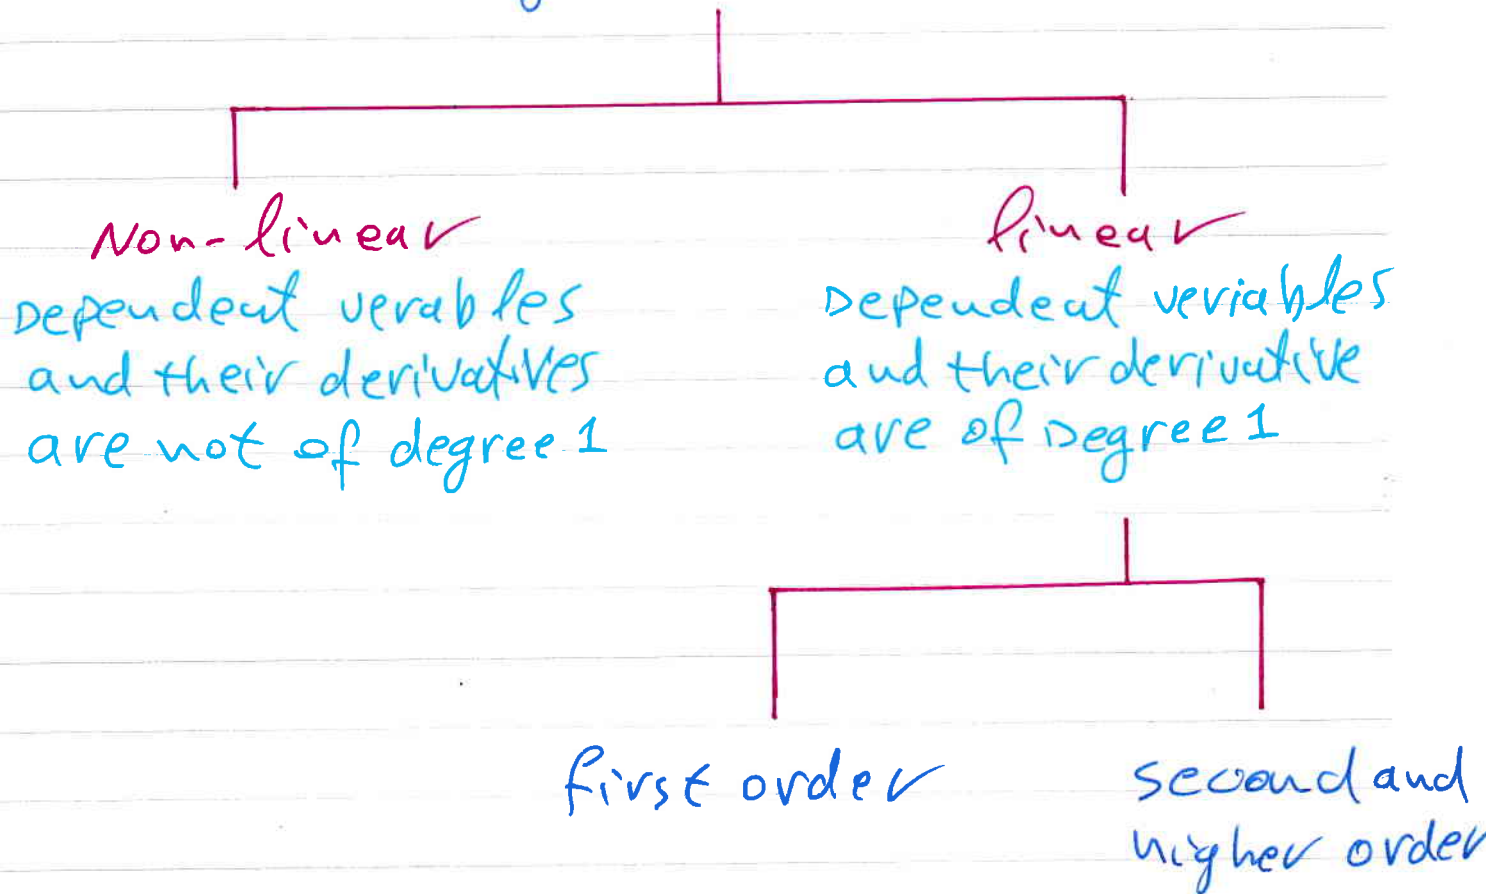 Non-linear
Dependent verables
and their derivatives
are not of degree 1
linear
Dependent veriables
and their derivative
are of Degree 1
first order
second and
higher order